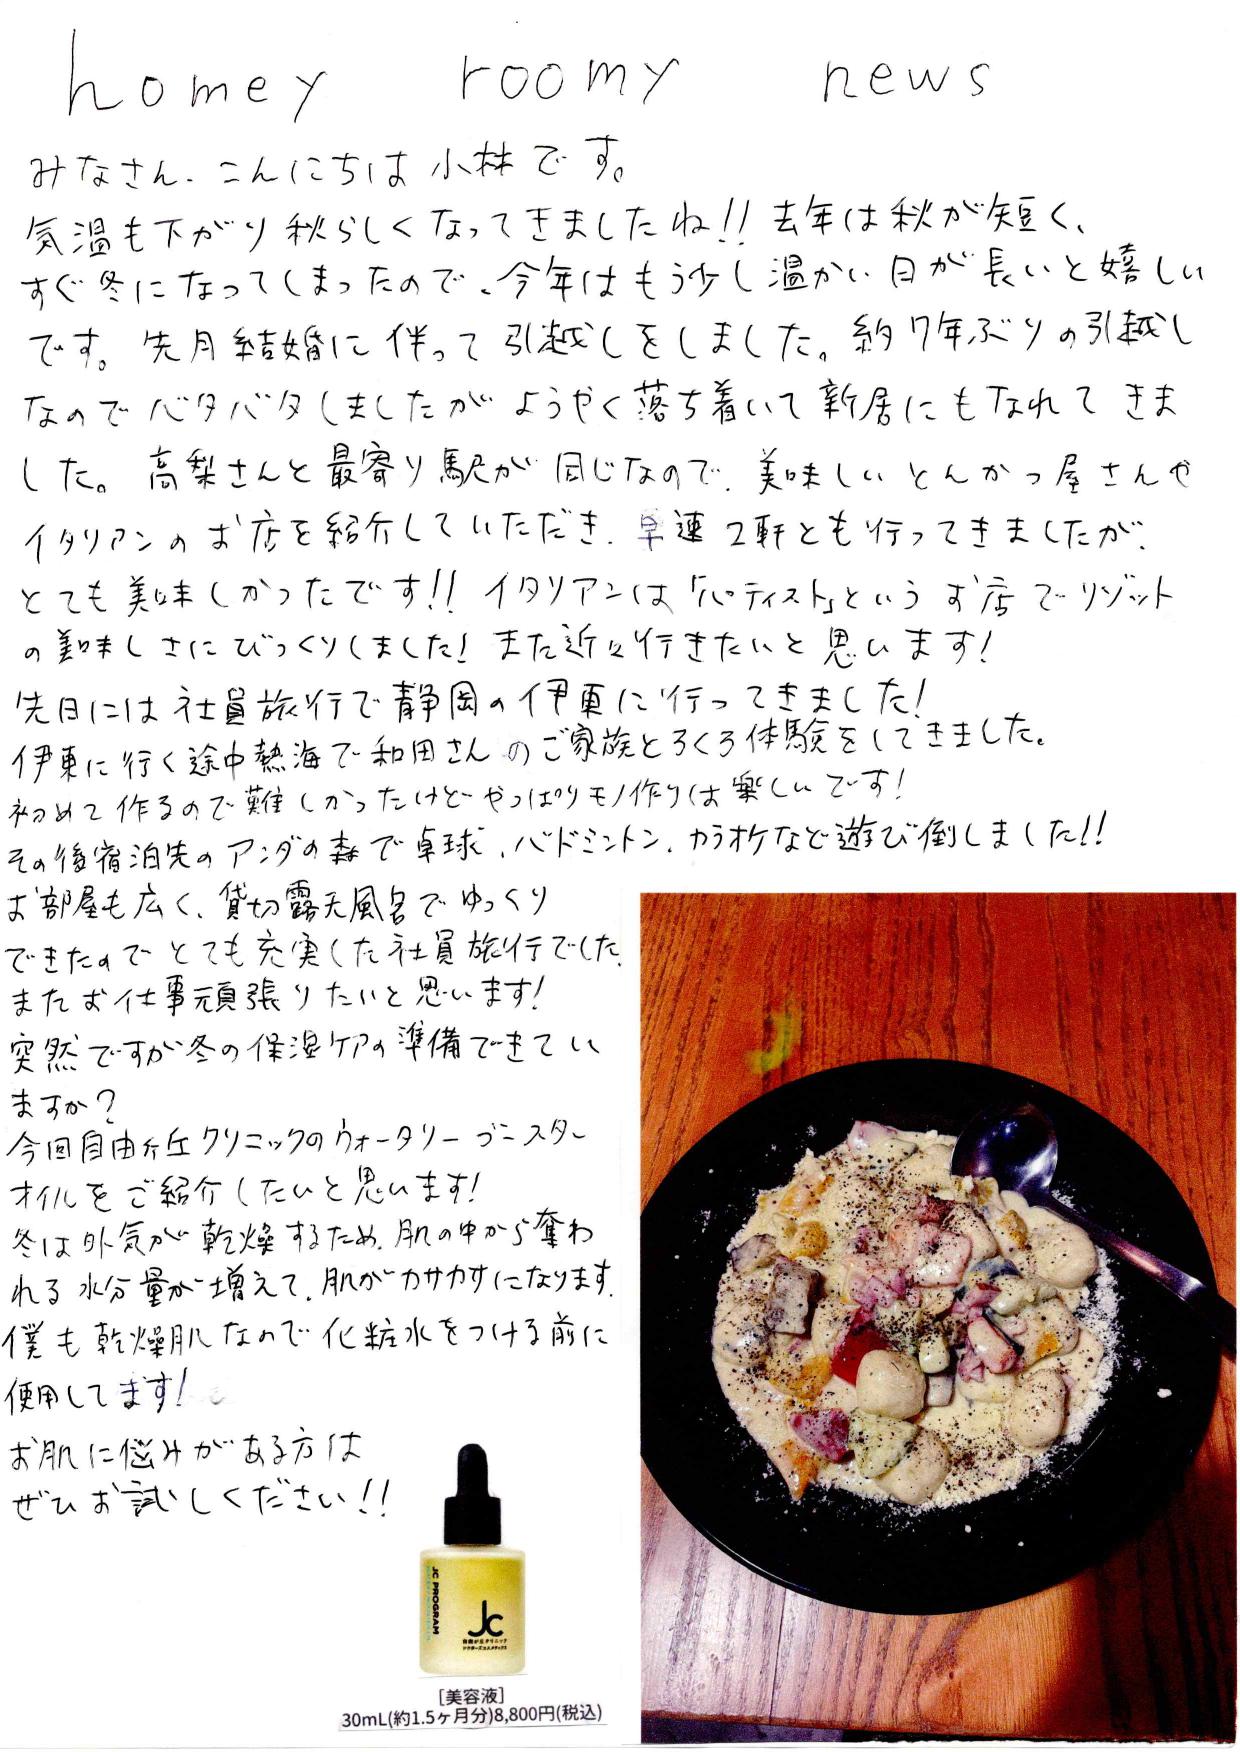 homey roomy news
みなさん、こんにちは 小林です。
気温も下がり秋らしくなってきましたね!! 去年は秋が短く、
すぐ冬になってしまったので、今年はもう少し温かい日が長いと嬉しい
です。先月結婚に伴って引越しをしました。約7年ぶりの引越し
なのでバタバタしましたがようやく落ち着いて新居にもなれてきま
した。高梨さんと最寄り駅が同じなので、美味しいとんかつ屋さんや
イタリアンのお店を紹介していただき、早速2軒とも行ってきましたが、
とても美味しかったです!! イタリアンは「パティスト」というお店でリゾット
の美味しさにびっくりしました! また近々行きたいと思います!
先日には社員旅行で静岡の伊東に行ってきました!
伊東に行く途中熱海で和田さんのご家族とろくろ体験をしてきました。
初めて作るので難しかったけどやっぱりモノ作りは楽しいです!
その後宿泊先のアンダの森で卓球、バドミントン、カラオケなど遊び倒しました!!
お部屋も広く、貸切露天風呂でゆっくり
できたのでとても充実した社員旅行でした。
またお仕事頑張りたいと思います!
突然ですが冬の保湿ケアの準備できてい
ますか?
今回自由が丘クリニックのウォータリーブースター
オイルをご紹介したいと思います!
冬は外気が乾燥するため、肌の中から奪わ
れる水分量が増えて、肌がカサカサになります。
僕も乾燥肌なので化粧水をつける前に
使用してます!
お肌に悩みがある方は
ぜひお試しください!!
JC PROGRAM
Jc
自由が丘クリニック
ドクターズコスメティックス
[美容液]
30mL(約1.5ヶ月分)8,800円(税込)